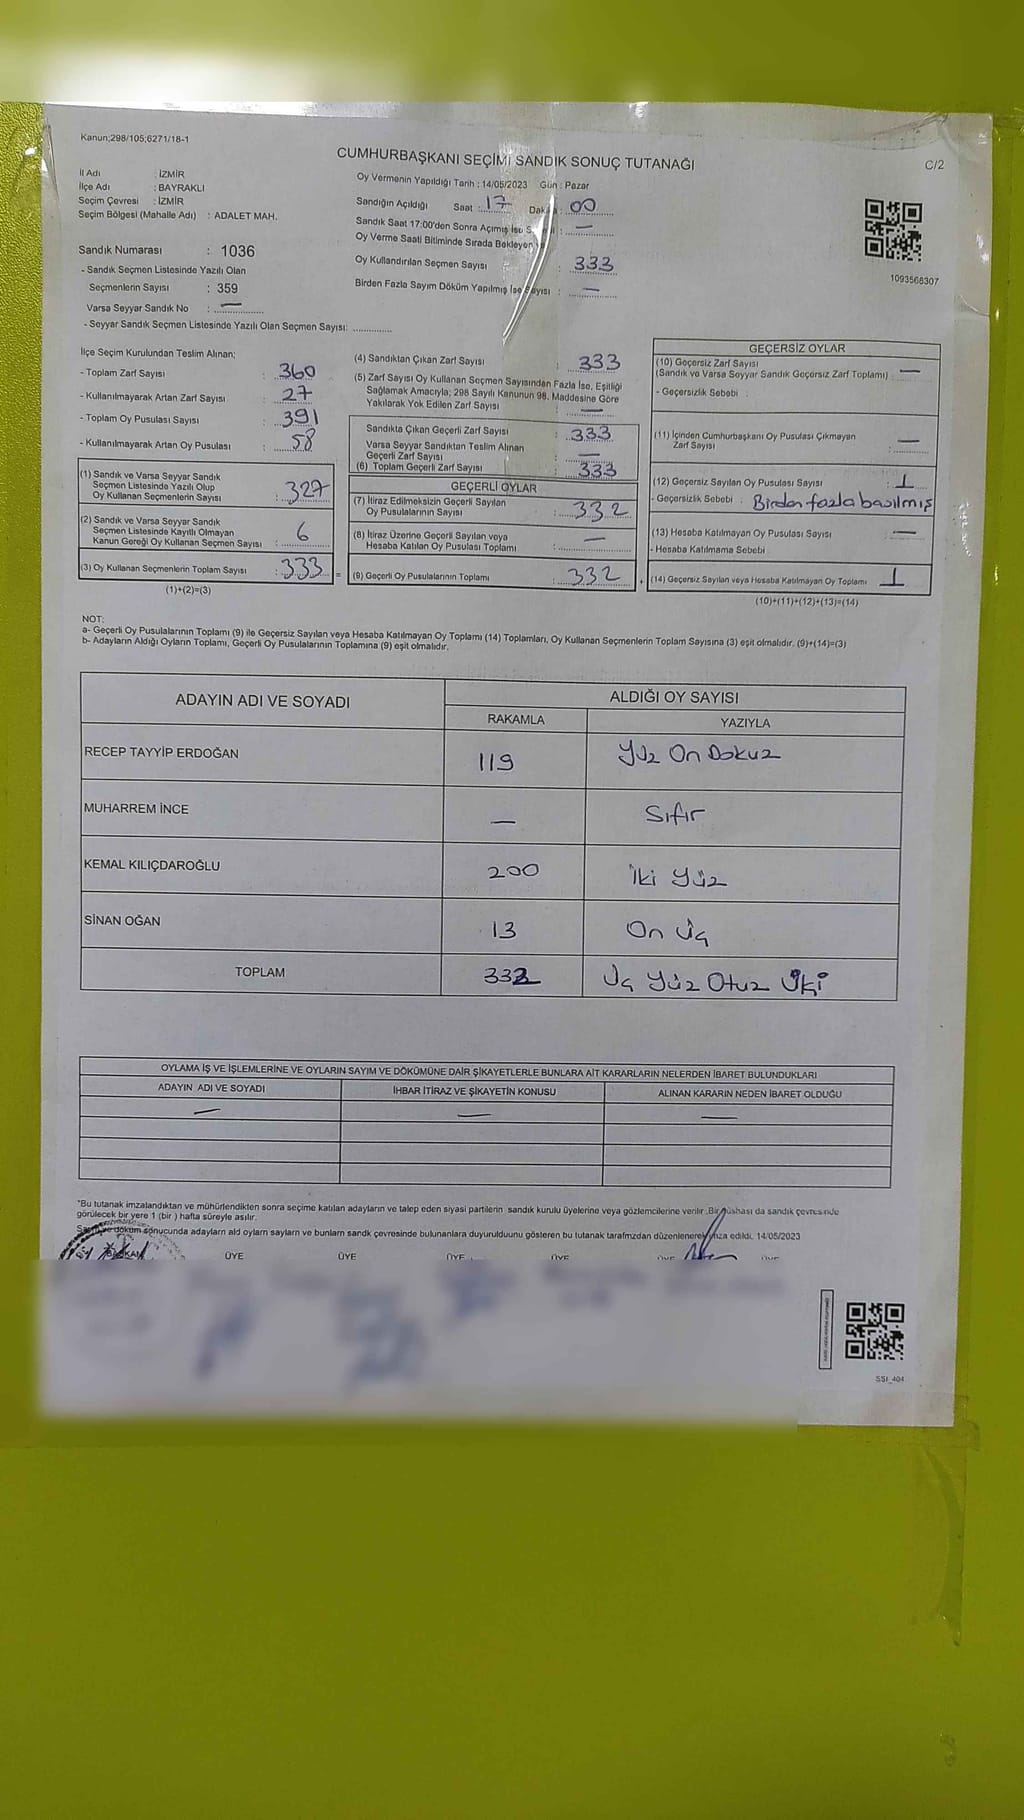 Kanun;298/105;6271/18-1
CUMHURBAŞKANI SEÇİMİ SANDIK SONUÇ TUTANAĞI
C/2
İl Adı : İZMİR
İlçe Adı : BAYRAKLI
Seçim Çevresi : İZMİR
Seçim Bölgesi (Mahalle Adı) : ADALET MAH.
Sandık Numarası : 1036
- Sandık Seçmen Listesinde Yazılı Olan
Seçmenlerin Sayısı : 359
Varsa Seyyar Sandık No : —
- Seyyar Sandık Seçmen Listesinde Yazılı Olan Seçmen Sayısı:
Oy Vermenin Yapıldığı Tarih : 14/05/2023 Gün : Pazar
Sandığın Açıldığı Saat : 17 Dakika : 00
Sandık Saat 17:00'den Sonra Açımış İse : —
Oy Verme Saati Bitiminde Sırada Bekleyen
Oy Kullandırılan Seçmen Sayısı : 333
Birden Fazla Sayım Döküm Yapılmış İse Sayısı : —
1093568307
İlçe Seçim Kurulundan Teslim Alınan;
- Toplam Zarf Sayısı : 360
- Kullanılmayarak Artan Zarf Sayısı : 27
- Toplam Oy Pusulası Sayısı : 391
- Kullanılmayarak Artan Oy Pusulası : 58
(1) Sandık ve Varsa Seyyar Sandık
Seçmen Listesinde Yazılı Olup
Oy Kullanan Seçmenlerin Sayısı : 327
(2) Sandık ve Varsa Seyyar Sandık
Seçmen Listesinde Kayıtlı Olmayan
Kanun Gereği Oy Kullanan Seçmen Sayısı : 6
(3) Oy Kullanan Seçmenlerin Toplam Sayısı : 333 =
(1)+(2)=(3)
(4) Sandıktan Çıkan Zarf Sayısı : 333
(5) Zarf Sayısı Oy Kullanan Seçmen Sayısından Fazla İse, Eşitliği
Sağlamak Amacıyla; 298 Sayılı Kanunun 98. Maddesine Göre
Yakılarak Yok Edilen Zarf Sayısı : —
Sandıkta Çıkan Geçerli Zarf Sayısı : 333
Varsa Seyyar Sandıktan Teslim Alınan
Geçerli Zarf Sayısı : —
(6) Toplam Geçerli Zarf Sayısı : 333
GEÇERLİ OYLAR
(7) İtiraz Edilmeksizin Geçerli Sayılan
Oy Pusulalarının Sayısı : 332
(8) İtiraz Üzerine Geçerli Sayılan veya
Hesaba Katılan Oy Pusulası Toplamı : —
(9) Geçerli Oy Pusulalarının Toplamı : 332 +
GEÇERSİZ OYLAR
(10) Geçersiz Zarf Sayısı
(Sandık ve Varsa Seyyar Sandık Geçersiz Zarf Toplamı) : —
- Geçersizlik Sebebi :
(11) İçinden Cumhurbaşkanı Oy Pusulası Çıkmayan
Zarf Sayısı : —
(12) Geçersiz Sayılan Oy Pusulası Sayısı : 1
- Geçersizlik Sebebi : Birden fazla basılmış
(13) Hesaba Katılmayan Oy Pusulası Sayısı : —
- Hesaba Katılmama Sebebi
(14) Geçersiz Sayılan veya Hesaba Katılmayan Oy Toplamı : 1
(10)+(11)+(12)+(13)=(14)
NOT:
a- Geçerli Oy Pusulalarının Toplamı (9) ile Geçersiz Sayılan veya Hesaba Katılmayan Oy Toplamı (14) Toplamları, Oy Kullanan Seçmenlerin Toplam Sayısına (3) eşit olmalıdır. (9)+(14)=(3)
b- Adayların Aldığı Oyların Toplamı, Geçerli Oy Pusulalarının Toplamına (9) eşit olmalıdır.
ADAYIN ADI VE SOYADI ALDIĞI OY SAYISI
RAKAMLA YAZIYLA
RECEP TAYYİP ERDOĞAN 119 Yüz On Dokuz
MUHARREM İNCE — Sıfır
KEMAL KILIÇDAROĞLU 200 İki Yüz
SİNAN OĞAN 13 On Üç
TOPLAM 332 Üç Yüz Otuz İki
OYLAMA İŞ VE İŞLEMLERİNE VE OYLARIN SAYIM VE DÖKÜMÜNE DAİR ŞİKAYETLERLE BUNLARA AİT KARARLARIN NELERDEN İBARET BULUNDUKLARI
ADAYIN ADI VE SOYADI İHBAR İTİRAZ VE ŞİKAYETİN KONUSU ALINAN KARARIN NEDEN İBARET OLDUĞU
— — —
*Bu tutanak imzalandıktan ve mühürlendikten sonra seçime katılan adayların ve talep eden siyasi partilerin sandık kurulu üyelerine veya gözlemcilerine verilir. Bir nüshası da sandık çevresinde
görülecek bir yere 1 (bir ) hafta süreyle asılır.
döküm sonucunda adayların ald oyların sayların ve bunların sandk çevresinde bulunanlara duyurulduunu gösteren bu tutanak tarafmzdan düzenlenerek imza edildi. 14/05/2023
BAŞKAN ÜYE ÜYE ÜYE ÜYE ÜYE ÜYE
SSI_404